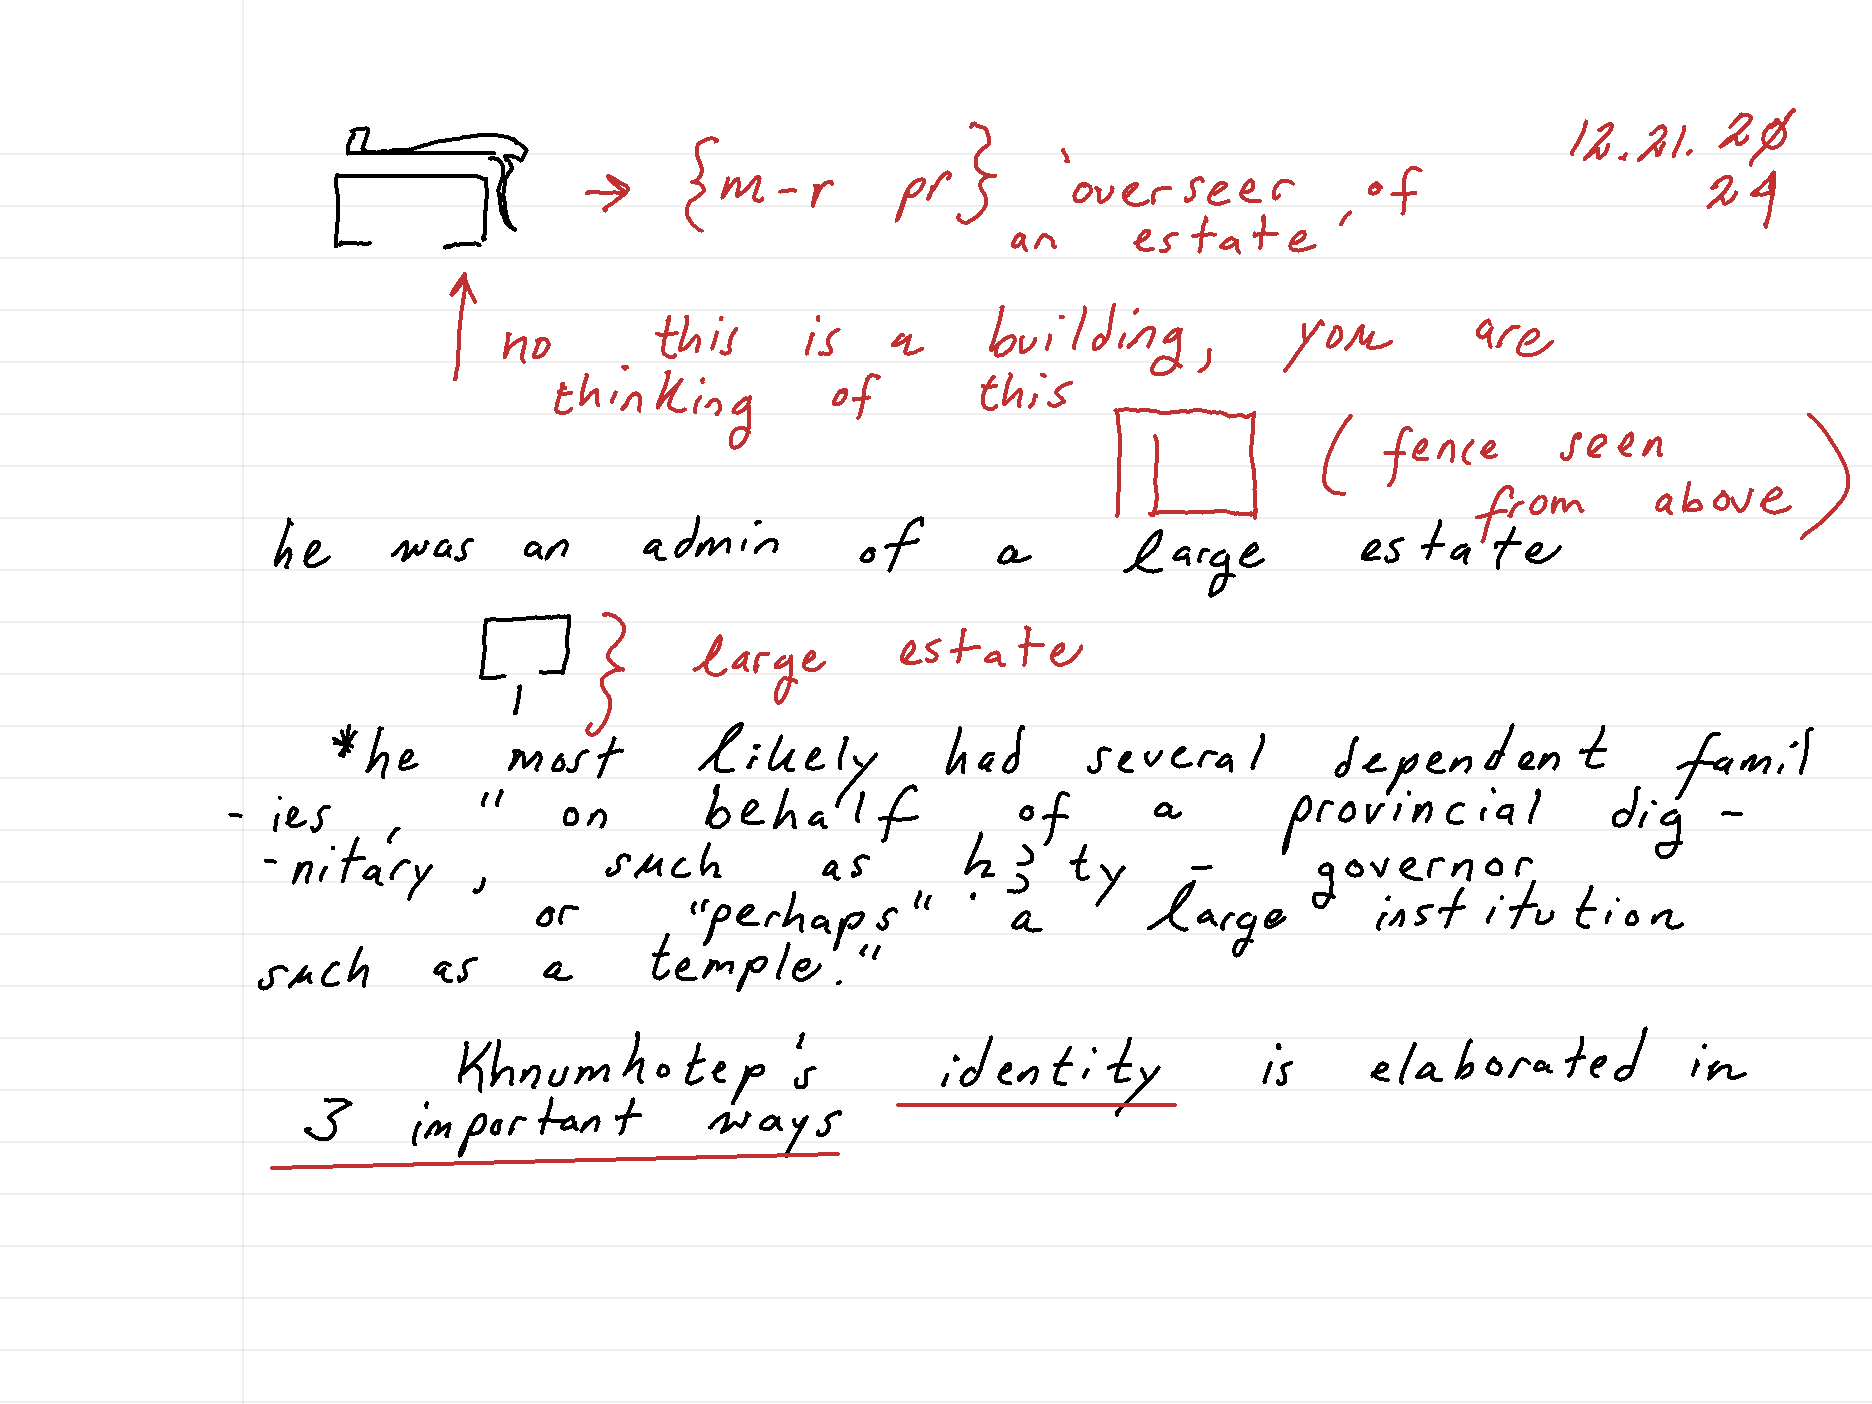 → {m-r pr} 'overseer, of 12.21.20
an estate' 24
no this is a building, you are
thinking of this
(fence seen
from above)
he was an admin of a large estate
} large estate
*he most likely had several dependent famil
-ies, "on behalf of a provincial dig-
-nitary, such as ḥꜣty-governor
or "perhaps" a large institution
such as a temple."
Khnumhotep's identity is elaborated in
3 important ways